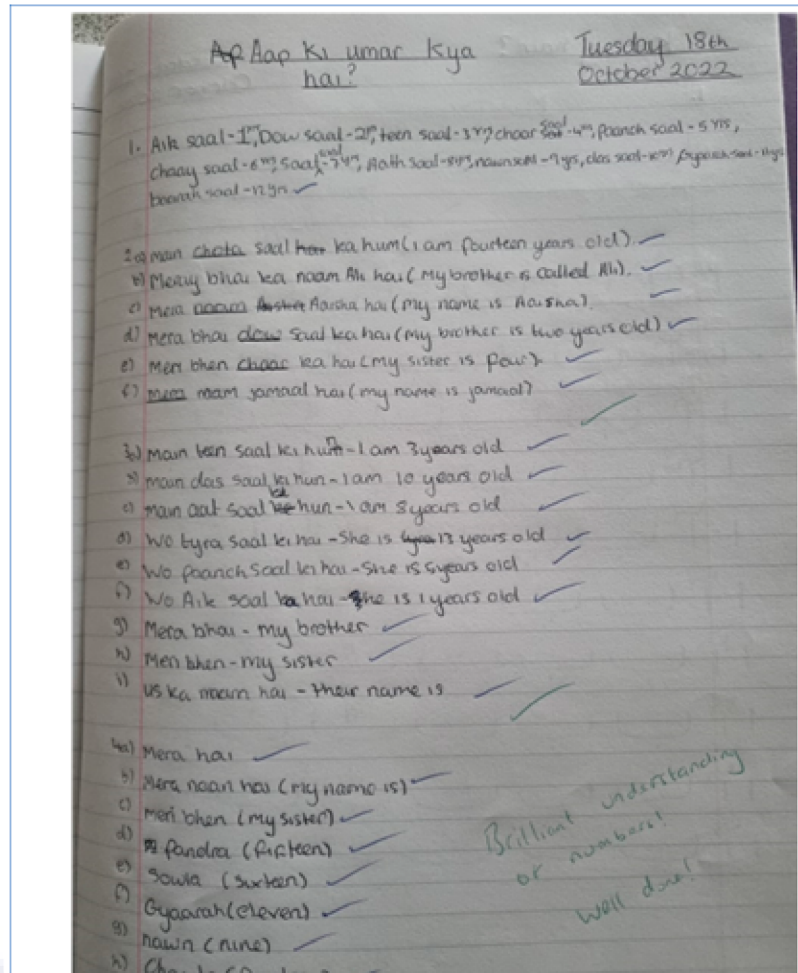 Aap Ki umar Kya
hai?
Tuesday 18th
October 2022
1. Aik saal - 1yr, Dow saal - 2yr, teen saal - 3yr, chaar saal - 4yr, Paanch saal - 5yrs,
chaay saal - 6yr, saat saal - 7yr, Aath saal - 8yr, nawn saal - 9yrs, das saal - 10yr, Gyaarah saal - 11yrs
baarah saal - 12yrs
2a) main choda saal ka hum (i am fourteen years old).
b) Meray bhai ka naam Ali hai (My brother is called Ali).
c) Mera naam Aaisha hai (my name is Aaisha).
d) Mera bhai dow saal ka hai (my brother is two years old)
e) Meri bhen chaar ka hai (my sister is four).
f) mera mam jamaal hai (my name is jamaal)
3a) Main teen saal ki hun - I am 3 years old
b) main das saal ki hun - I am 10 years old
c) main aat saal ka hun - I am 8 years old
d) Wo tyra saal ki hai - She is 13 years old
e) Wo Paanch saal ki hai - She is 5 years old
f) Wo Aik saal ka hai - he is 1 years old
g) Mera bhai - my brother
h) Meri bhen - my sister
i) us ka naam hai - their name is
4a) Mera hai
b) Mera naam hai (my name is)
c) meri bhen (my sister)
d) Pandra (fifteen)
e) Sowla (sixteen)
f) Gyaarah (eleven)
g) nawn (nine)
h)
Brilliant understanding
of numbers!
Well done!